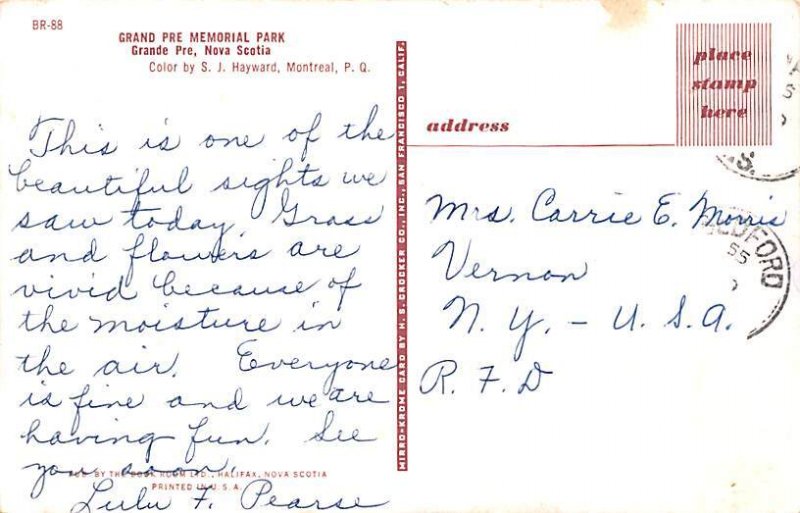 BR-88
GRAND PRE MEMORIAL PARK
Grande Pre, Nova Scotia
Color by S. J. Hayward, Montreal, P. Q.
This is one of the
beautiful sights we
saw today. Grass
and flowers are
vivid because of
the moisture in
the air. Everyone
is fine and we are
having fun. See
you soon.
Lulu F. Pearse
PUB. BY THE BOOK ROOM LTD., HALIFAX, NOVA SCOTIA
PRINTED IN U.S.A.
MIRRO-KROME CARD BY H. S. CROCKER CO., INC., SAN FRANCISCO 1, CALIF.
place
stamp
here
address
Mrs. Carrie E. Morris
Vernon
N. Y. - U. S. A.
R. F. D
.S.
EDFORD
55